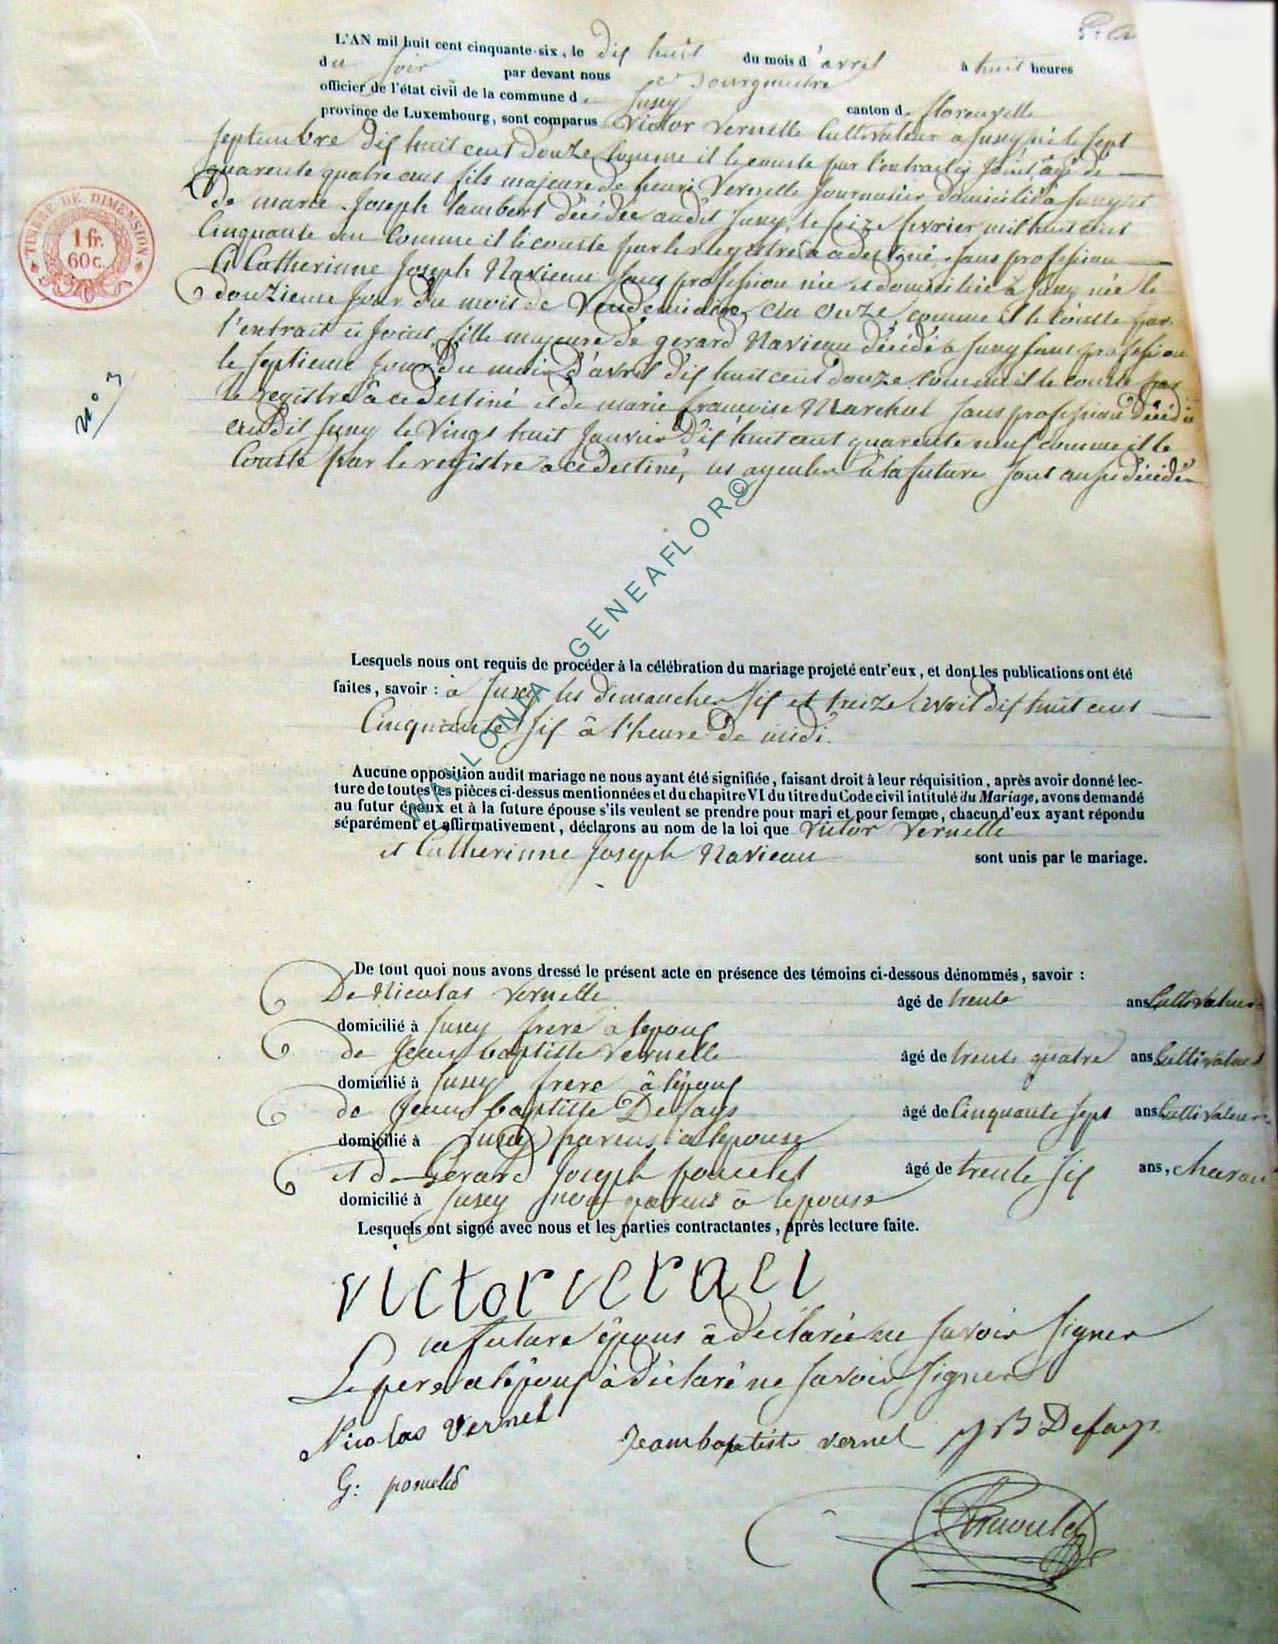 L'AN mil huit cent cinquante-six, le dix huit du mois d'avril à huit heures
du soir par devant nous Bourgmestre
officier de l'état civil de la commune de Jusey canton de florenville
province de Luxembourg, sont comparus Victor Vernelle Cultivateur a Jusey né le sept
septembre dix huit cent douze comme il le conste par l'extrait ci joint âgé de
quarente quatre ans fils majeure de henri Vernelle Journalier domicilié à Jusey et
de marie Joseph lambert décédée audit Jusey, le seize fevrier mil huit cent
Cinquante un comme il le conste par les registres a ce destiné, sans profession
Et Catherinne Joseph Navieau sans profession née et domiciliée à Jusey née le
douzieme Jour du mois de Vendemiaire an onze comme il le conste par
l'extrait ci Joint fille majeure de gerard Navieau décédé a Jusey sans profession
le septieme Jour du mois d'avril dix huit cent douze comme il le conste par
le registre à ce destiné et de marie francoise Marchal sans profession décédée
audit Jusey le Vingt huit Janvier dix huit cent quarente neuf comme il le
Conste par le registre a ce destiné, les ayeules de la future sont aussi décédés
TIMBRE DE DIMENSION
1 fr.
60 c.
N° 3
WALLONIA GENEAFLOR©
Lesquels nous ont requis de procéder à la célébration du mariage projeté entr'eux, et dont les publications ont été
faites, savoir : à Jusey les dimanches six et treize avril dix huit cent
Cinquante six à l'heure de midi.
Aucune opposition audit mariage ne nous ayant été signifiée, faisant droit à leur réquisition, après avoir donné lec-
ture de toutes les pièces ci-dessus mentionnées et du chapitre VI du titre du Code civil intitulé du Mariage, avons demandé
au futur époux et à la future épouse s'ils veulent se prendre pour mari et pour femme, chacun d'eux ayant répondu
séparément et affirmativement, déclarons au nom de la loi que Victor Vernelle
et Catherinne Joseph Navieau sont unis par le mariage.
De tout quoi nous avons dressé le présent acte en présence des témoins ci-dessous dénommés, savoir :
De Nicolas Vernelle âgé de trente ans Cultivateur
domicilié à Jusey frere a lepoux
de Jean baptiste Vernelle âgé de trente quatre ans Cultivateur
domicilié à Jusey frere à lépoux
de Jean baptiste Defays âgé de Cinquante sept ans Cultivateur
domicilié à Jusey parens a lepouse
et de Gerard Joseph poncelet âgé de trente six ans,
domicilié à Jusey non parens à lepouse
Lesquels ont signé avec nous et les parties contractantes, après lecture faite.
victor vernel
la future épouse à déclarée ne savoir signer
Le pere a lépoux à déclaré ne savoir signer
Nicolas Vernel
Jean baptiste vernel J B Defays
G: poncelet